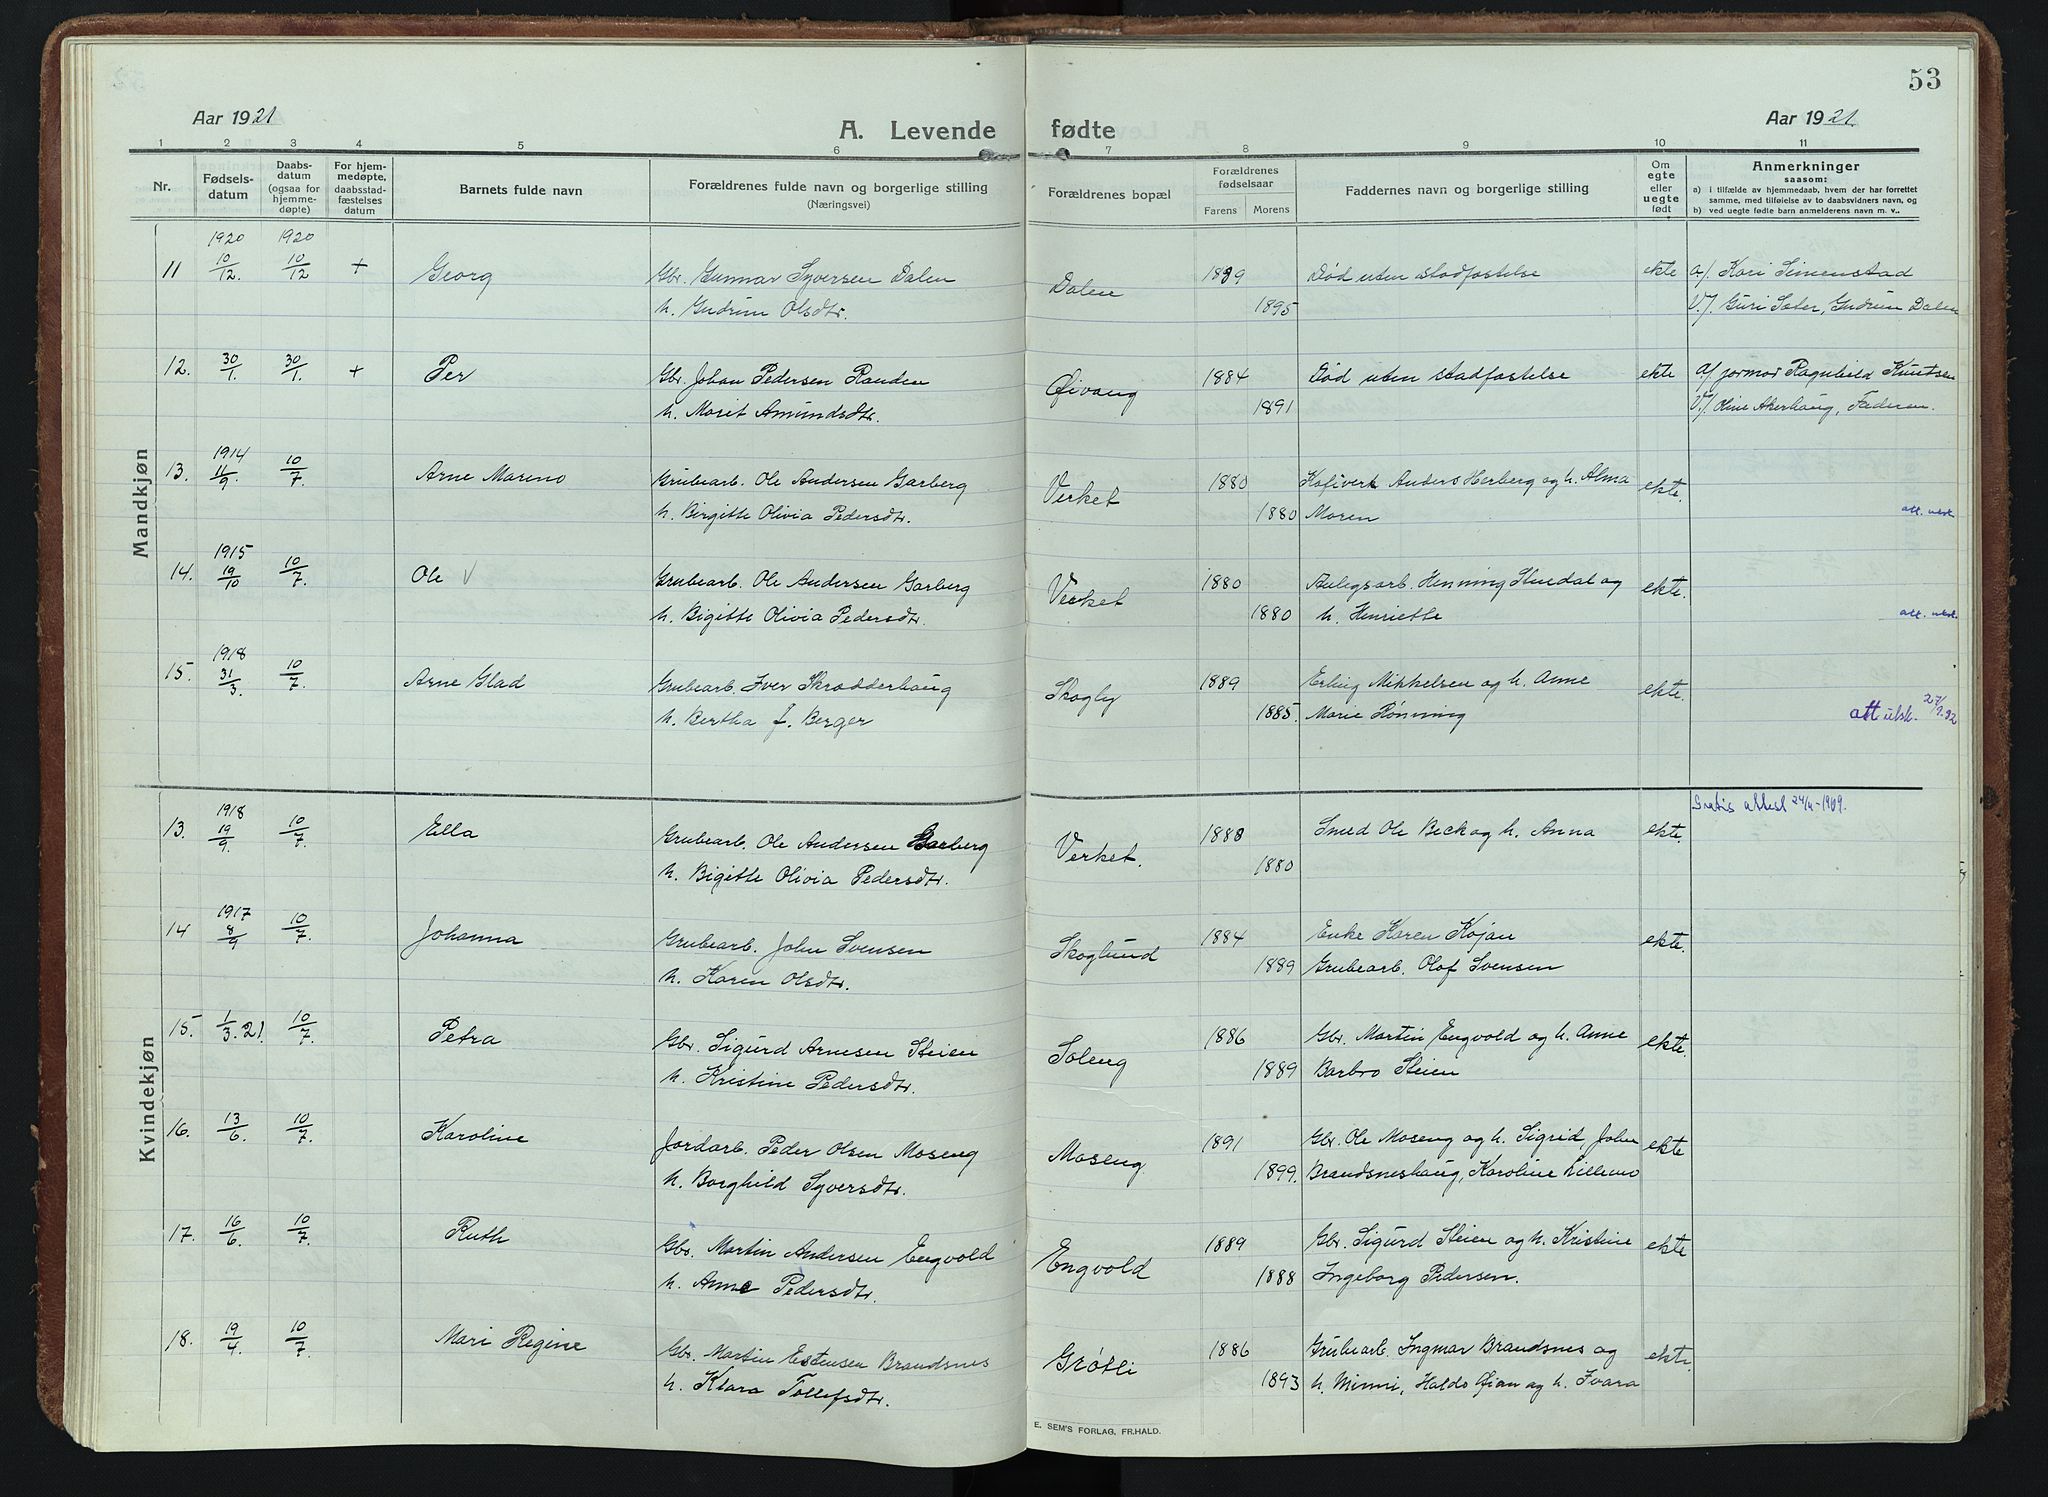 53
Aar 1921
A. Levende fødte
Aar 1921
1 2 3 4 5 6 7 8 9 10 11
Nr.
Fødsels-
datum
Daabs-
datum
(ogsaa for
hjemme-
døpte)
For hjem-
medøpte,
daabsstad-
fæstelses
datum
Barnets fulde navn
Forældrenes fulde navn og borgerlige stilling
(Næringsvei)
Forældrenes bopæl
Forældrenes
fødselsaar
Farens Morens
Faddernes navn og borgerlige stilling
Om
egte
eller
uegte
født
Anmerkninger
saasom:
a) i tilfælde av hjemmedaab, hvem der har forrettet
samme, med tilføielse av to daabsvidners navn, og
b) ved uegte fødte barn anmelderens navn m. v..
Mandkjøn
1920 1920
11 10/12. 10/12 + Georg Gbr. Gunnar Syversen Dalen Dalen 1889 Død uten stadfæstelse ekte a/. Kari Simenstad
h. Gudrun Olsdtr. 1895 V/. Guri Sæter, Gudrun Dalen
12. 30/1. 30/1. + Per Gbr. Johan Pedersen Randen Øivang 1884 Død uten stadfæstelse ekte a/ jormor Ragnhild Knutsen
h. Marit Amundsdtr. 1891 V/. Oline Akerhaug, Faderen.
1914
13. 11/9. 10/7. Arne Mareno Grubearb. Ole Andersen Garberg Verket 1880 Anders Herberg og h. Alma ekte.
h. Birgitte Olivia Pedersdtr. 1880 Moren att. utst.
1915
14. 19/10 10/7. Ole V Grubearb. Ole Andersen Garberg Verket 1880 Anlegsarb. Henning Stuedal og ekte.
h. Bigitte Olivia Pedersdtr. 1880 h. Henriette att. utst.
1918
15. 31/3. 10/7. Arne Glad Grubearb. Iver Skrædderhaug Skogly 1889 Erling Mikkelsen og h. Anne ekte.
h. Bertha f. Berger 1885. Marie Rønning att utsk.
Kvindekjøn
Gratis attest
1918
13. 19/9. 10/7. Ella Grubearb. Ole Andersen Garberg Verket. 1880 Smed Ole Beck og h. Anna ekte.
h. Bigitte Olivia Pedersdtr. 1880
1917
14 8/9 10/7. Johanna Grubearb. John Svensen Skoglund 1884 Enke Karen Køjan ekte.
h. Karen Olsdtr. 1889 Grubearb. Olof Svensen
15. 1/3. 21 10/7. Petra Gbr. Sigurd Arnesen Steien Soleng 1886 Gbr. Martin Engvold og h. Anne ekte.
h. Kristine Pedersdtr. 1889 Barbro Steien
16. 13/6. 10/7. Karoline Jordarb. Peder Olsen Moseng Moseng 1891 Gbr. Ole Moseng og h. Sigrid, John ekte
h. Borghild Syversdtr. 1899. Brandsneshaug, Karoline Lillemo
17. 16/6 10/7. Ruth Gbr. Martin Andersen Engvold Engvold 1889 Gbr. Sigurd Steien og h. Kristine ekte
h. Anne Pedersdtr. 1888 Ingeborg Pedersen.
18. 19/4. 10/7. Mari Regine Gbr. Martin Estensen Brandsnes Grøtli 1886 Grubearb. Ingmar Brandsnes og ekte.
h. Klara Tollefsdtr. 1893 h. Minni, Haldo Øian og h. Ivara
E. SEM'S FORLAG, FR.HALD.